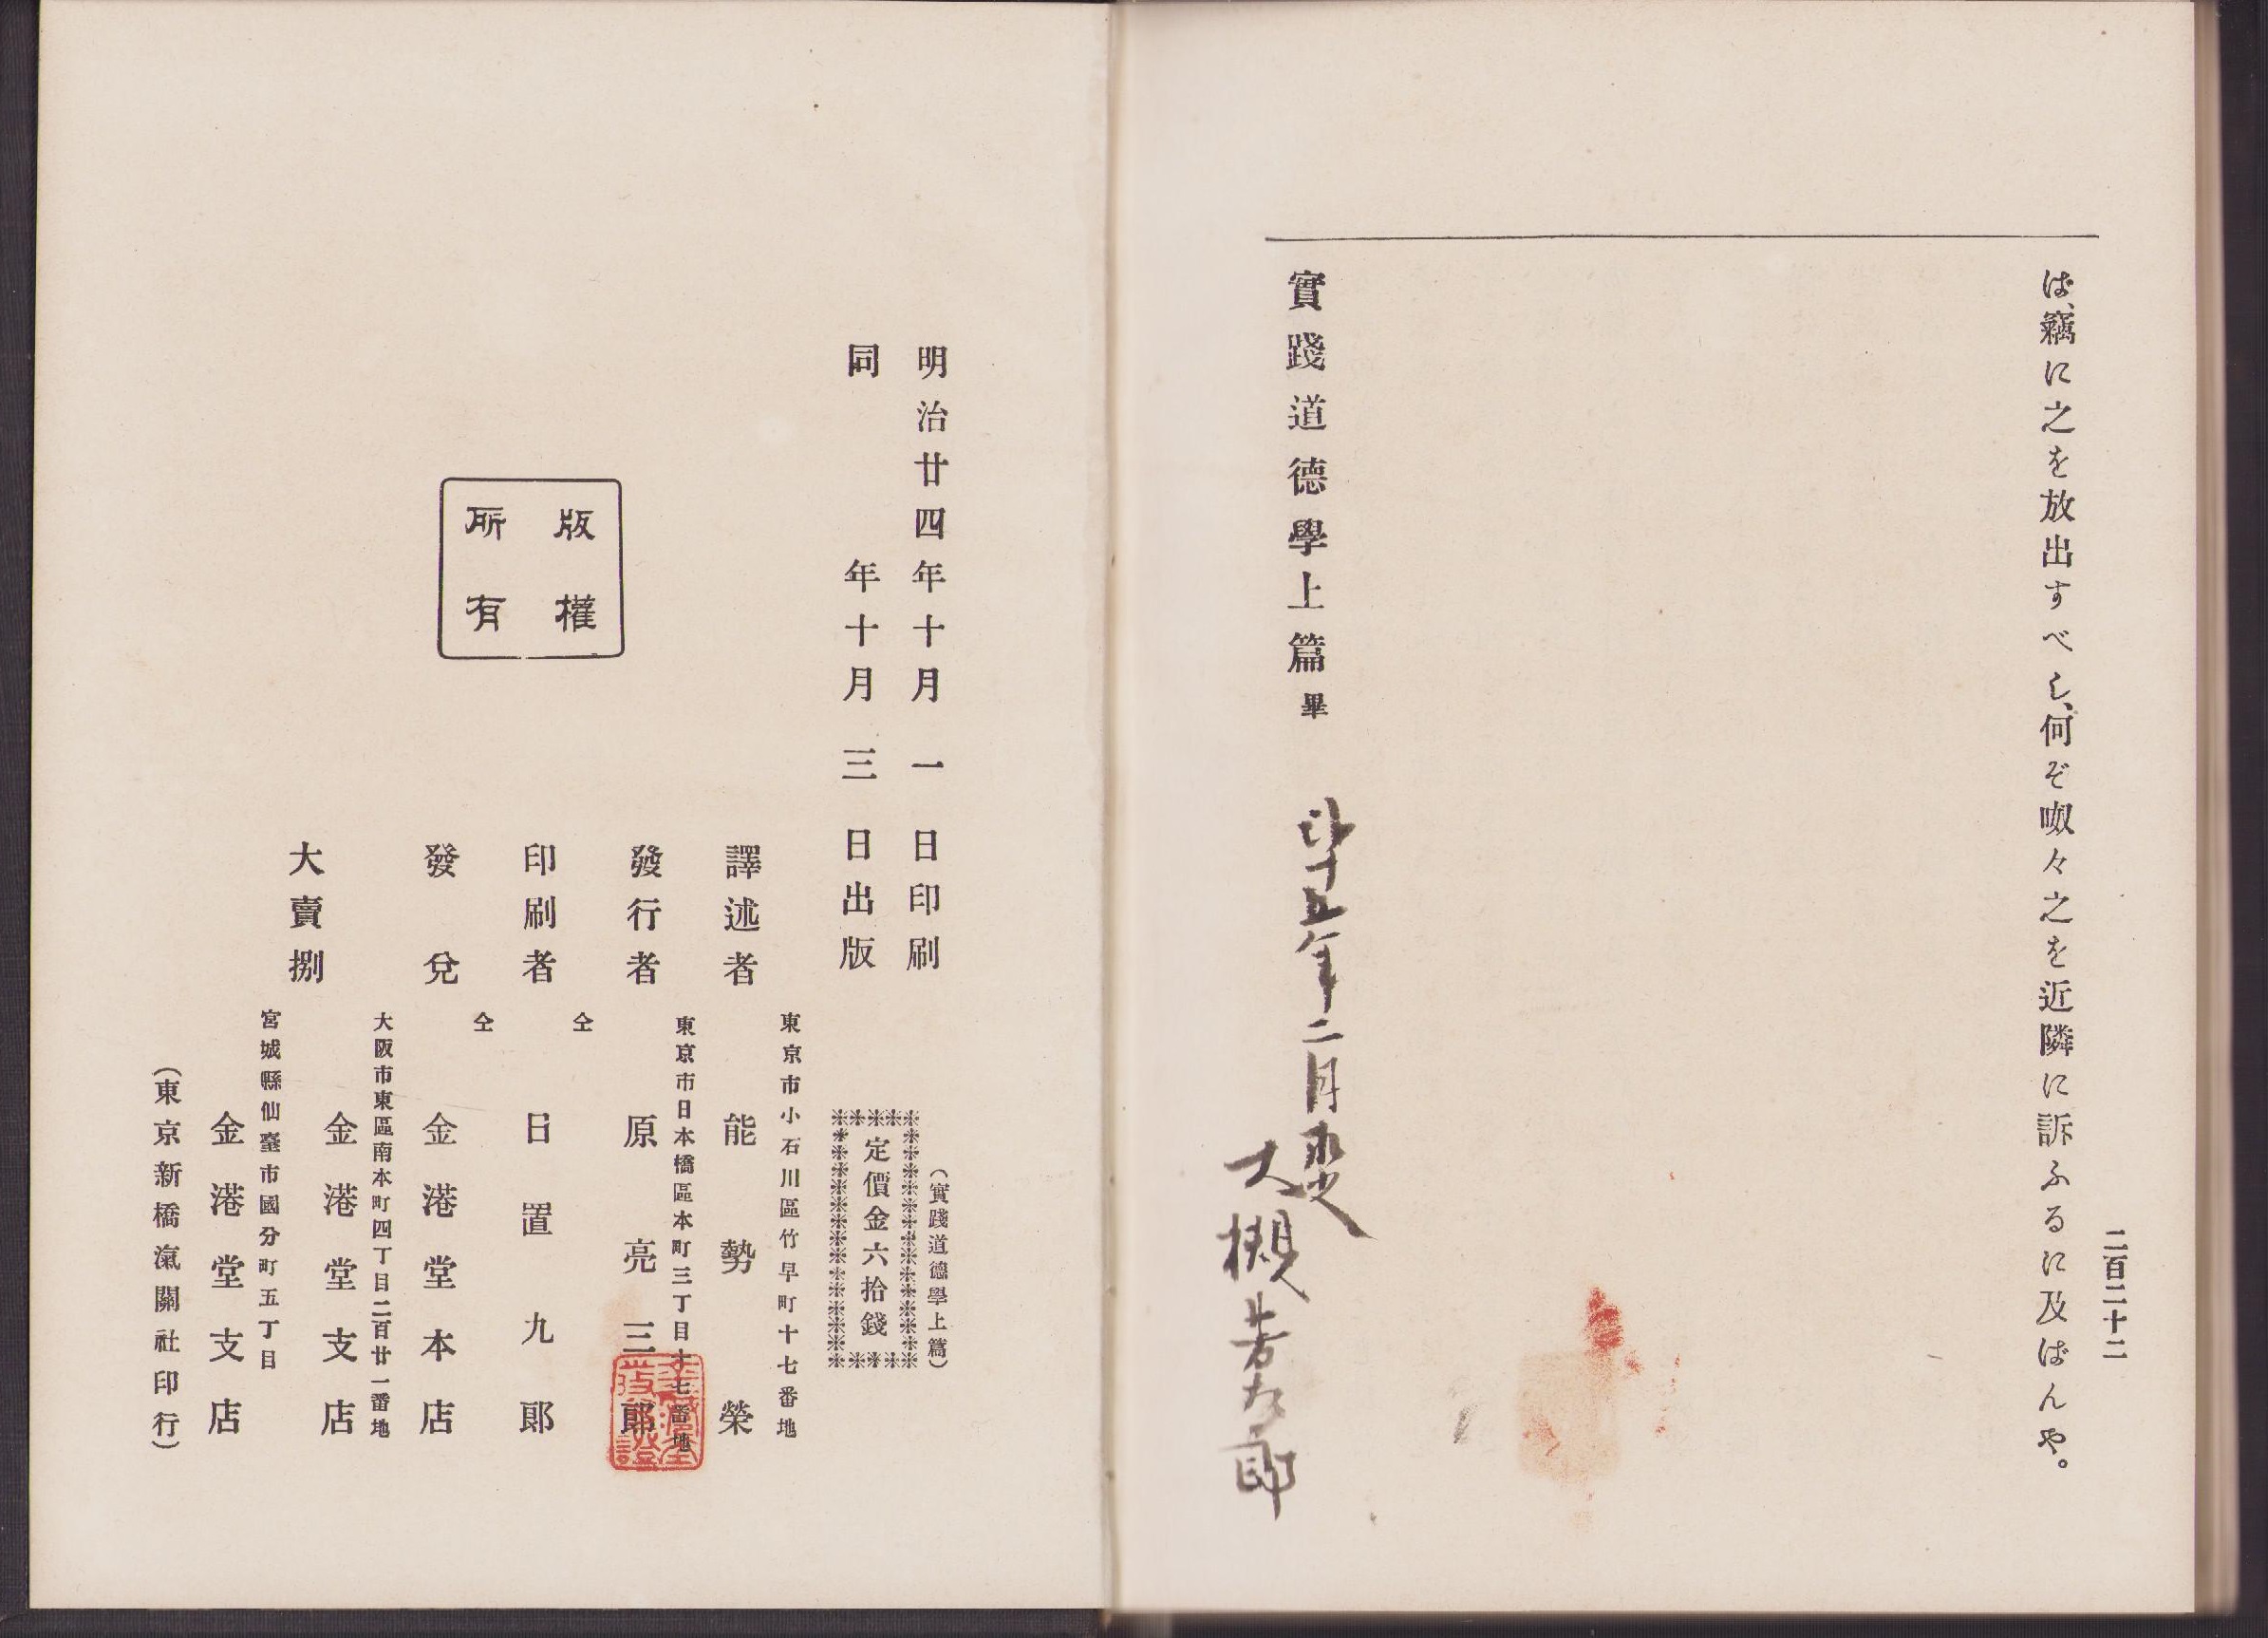 二百二十二
は、竊に之を放出すべし、何ぞ呶々之を近隣に訴ふるに及ばんや。
實踐道德學上篇畢
年二月
大槻
郎
明治廿四年十月一日印刷
同年十月三日出版
(實踐道德學上篇)
定價金六拾錢
版權
所有
東京市小石川區竹早町十七番地
譯述者 能勢榮
東京市日本橋區本町三丁目十七番地
發行者 原亮三郎
仝
印刷者 日置九郎
仝
發兌 金港堂本店
大阪市東區南本町四丁目二百廿一番地
大賣捌 金港堂支店
宮城縣仙臺市國分町五丁目
金港堂支店
(東京新橋滊關社印行)